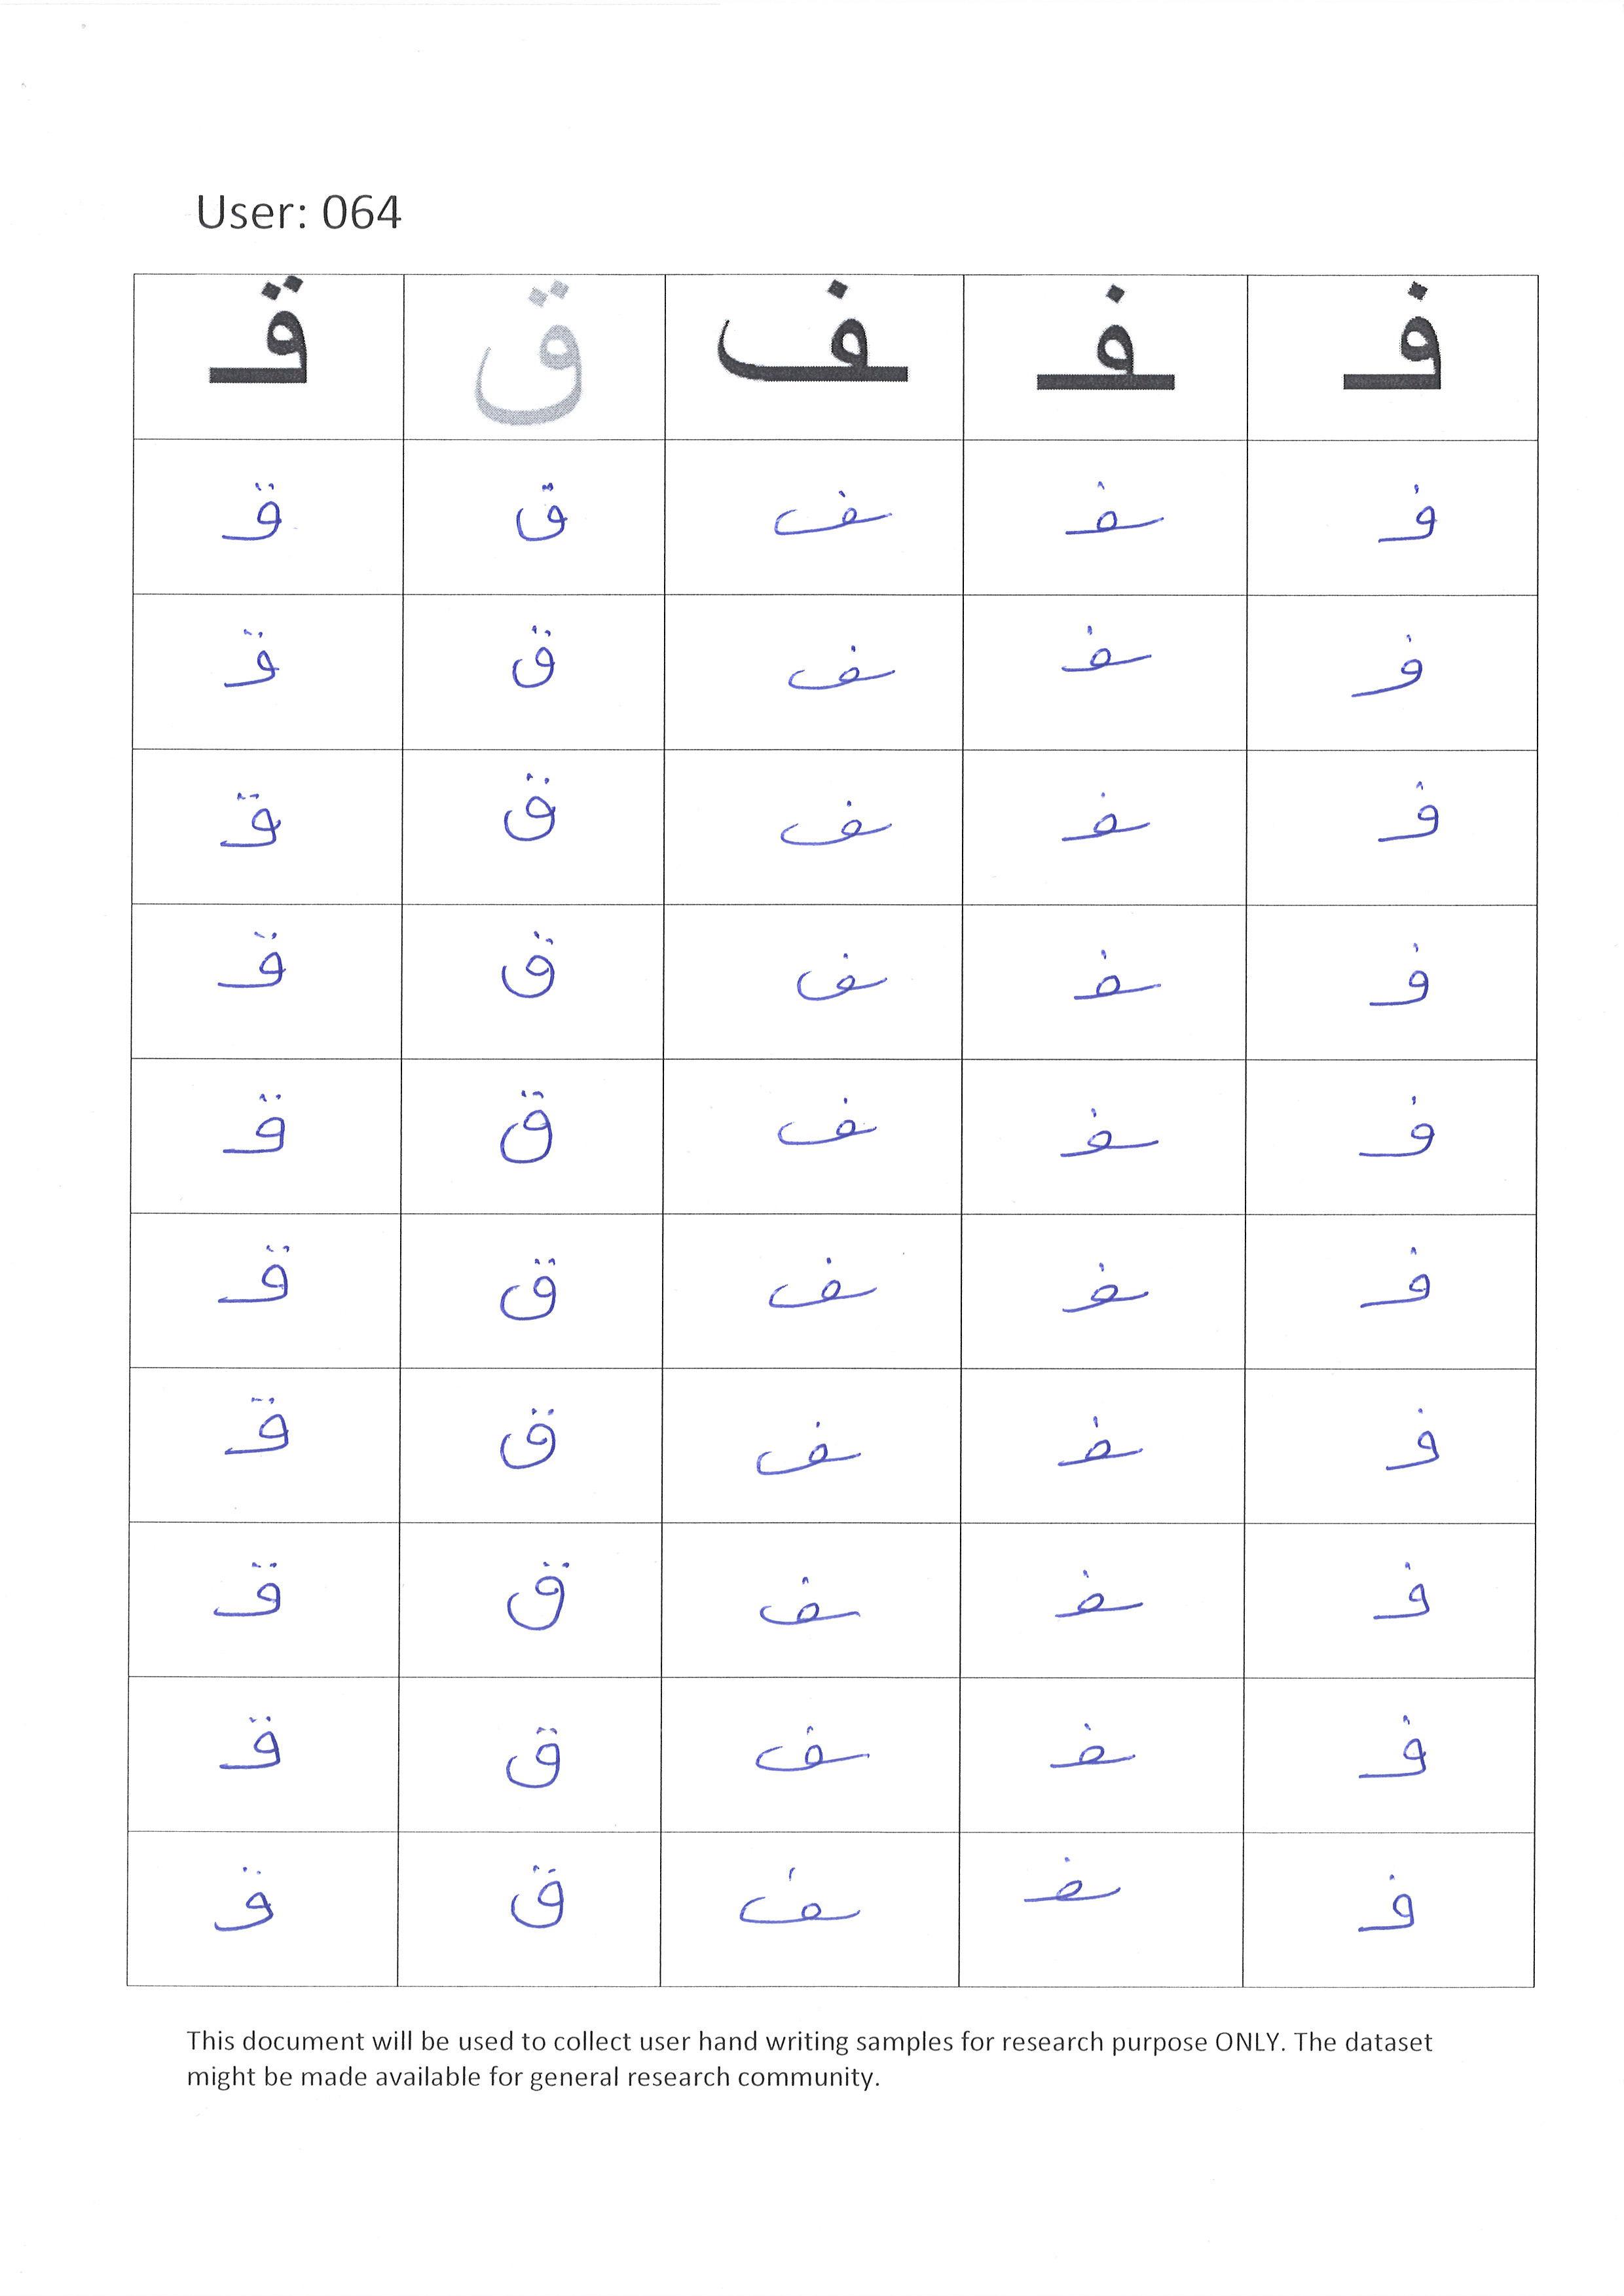 User: 064
فـ ـفـ ـف ق قـ
فـ ـفـ ـف ق قـ
فـ ـفـ ـف ق قـ
فـ ـفـ ـف ق قـ
فـ ـفـ ـف ق قـ
فـ ـفـ ـف ق قـ
فـ ـفـ ـف ق قـ
فـ ـفـ ـف ق قـ
فـ ـفـ ـف ق قـ
فـ ـفـ ـف ق قـ
فـ ـفـ ـف ق قـ
This document will be used to collect user hand writing samples for research purpose ONLY. The dataset
might be made available for general research community.